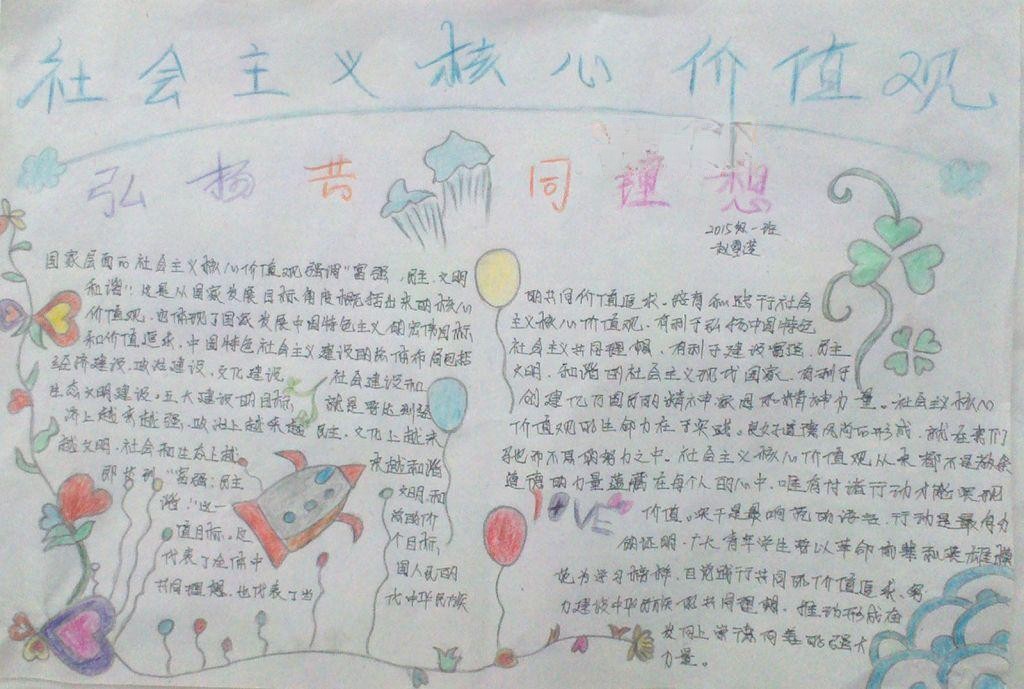 社会主义核心价值观
弘扬共同理想
2015级一班
国家层面的社会主义核心价值观强调"富强、民主、文明
和谐",这是从国家发展目标角度概括出来的核心
价值观,也体现了国家发展中国特色主义的宏伟目标
和价值追求,中国特色社会主义建设的总体布局包括
经济建设、政治建设、文化建设、社会建设和
生态文明建设。五大建设的目标,就是要达到经
济上越来越强,政治上越来越民主,文化上越来
越文明,社会和生态上越来越和谐
即达到"富强、民主、文明、和
谐"这一
值目标。这个目标,
代表了全体中国人民的
共同理想,也代表了当代中华民族
的共同价值追求。培育和践行社会
主义核心价值观,有利于弘扬中国特色
社会主义共同理想,有利于建设富强、民主
文明、和谐的社会主义现代国家,有利于
创建亿万国民的精神家园和精神力量。社会主义核心
价值观的生命力在于实践。良好道德风尚的形成,就在我们
社会主义核心价值观从来都不是抽象
道德的力量蕴藏在每个人的心中,唯有付诸行动才能实现
LOVE
价值。实干是最响亮的语言,行动是最有力
的证明。广大青年学生要以革命前辈和英雄模
范为学习榜样,自觉践行共同的价值追求,努
力建设中华民族的共同理想,推动形成奋
发向上崇德向善的强大
力量。